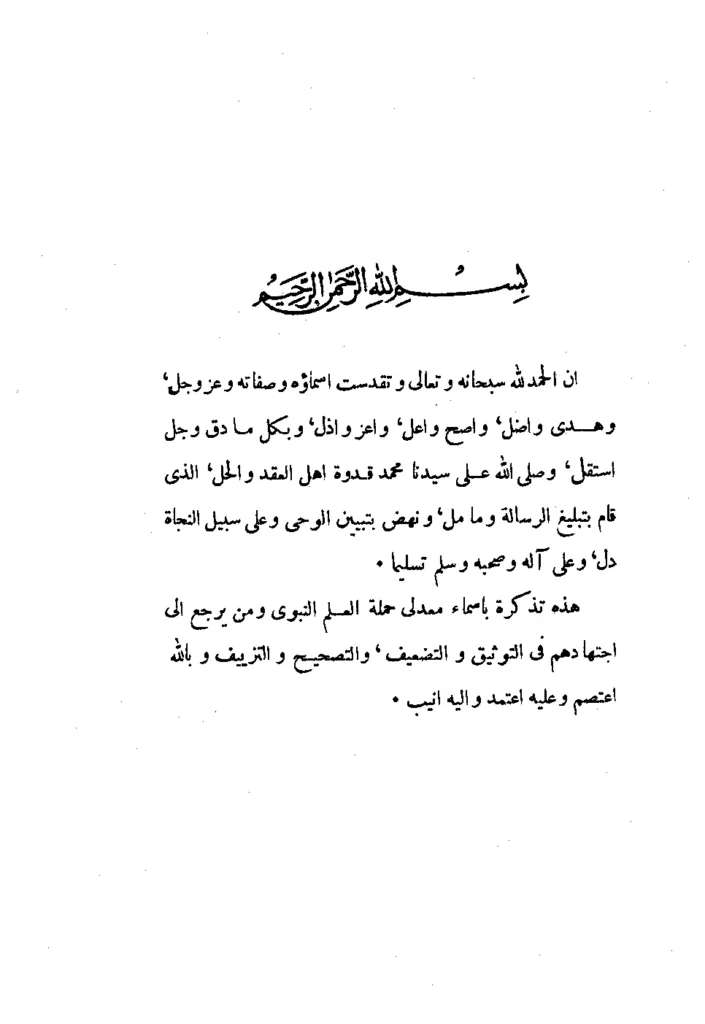 بِسْمِ اللهِ الرَّحْمٰنِ الرَّحِيْمِ
ان الحمدلله سبحانه و تعالى و تقدست اسماؤه و صفاته و عز وجل،
وهــدى و اضل، و اصح و اعل، و اعز و اذل، و بكل مـا دق و جل
استقل، وصلى الله عـلى سيدنا محمد قـدوة اهل العقد و الحل، الذى
قام بتبليغ الرسالة و ما مل، و نهض بتبيين الوحى و على سبيل النجاة
دل، و على آله و صحبه و سلم تسليما •
هذه تذكرة باسماء معدلى حملة العـلم النبوى ومن يرجع الى
اجتهادهم فى التوثيق و التضعيف، والتصحيح و التزييف و بالله
اعتصم و عليه اعتمد و اليه انيب •